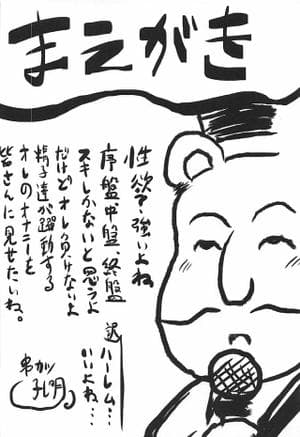 まえがき
性欲て、強いよね
序盤、中盤、終盤
スキしかないと思うよ
だけどオレ負けないよ
精子達が躍動する
オレのオナニーを
皆さんに見せたいね。
逆ハーレム…
いいよね…
串カツ
孔明